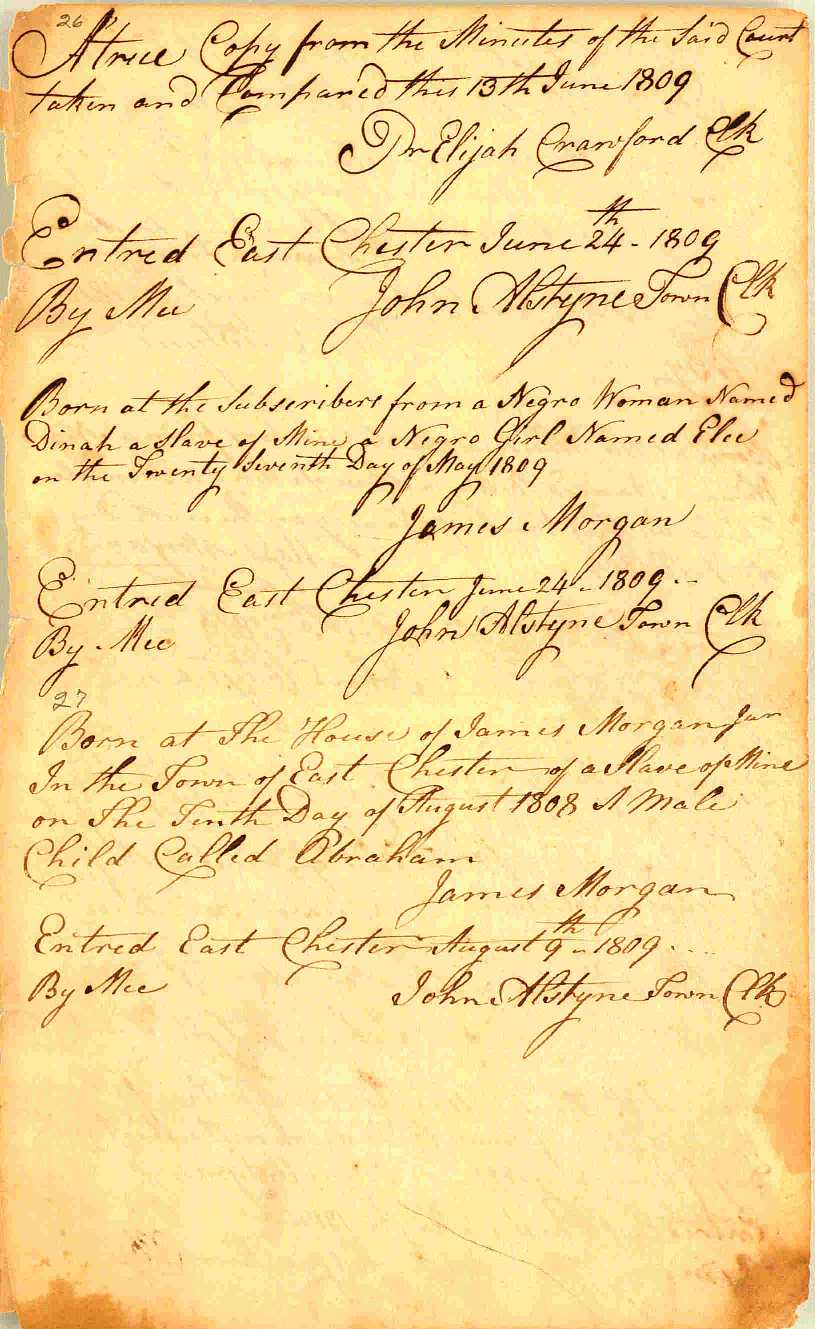 26
A true Copy from the Minutes of the Said Court
taken and Compared this 13th June 1809
Pr Elijah Crawford Clk
Entred East Chester June 24th - 1809
By Mee John Alstyne Town Clk
Born at the Subscribers from a Negro Woman Named
Dinah a Slave of Mine a Negro Girl Named Elee
on the Twenty Seventh Day of May 1809
James Morgan
Entred East Chester June 24 - 1809 --
By Mee John Alstyne Town Clk
27
Born at The House of James Morgan Jur
In the Town of East Chester of a Slave of Mine
on The Tenth Day of August 1808 A Male
Child Called Abraham
James Morgan
Entred East Chester August 9th - 1809 ....
By Mee John Alstyne Town Clk